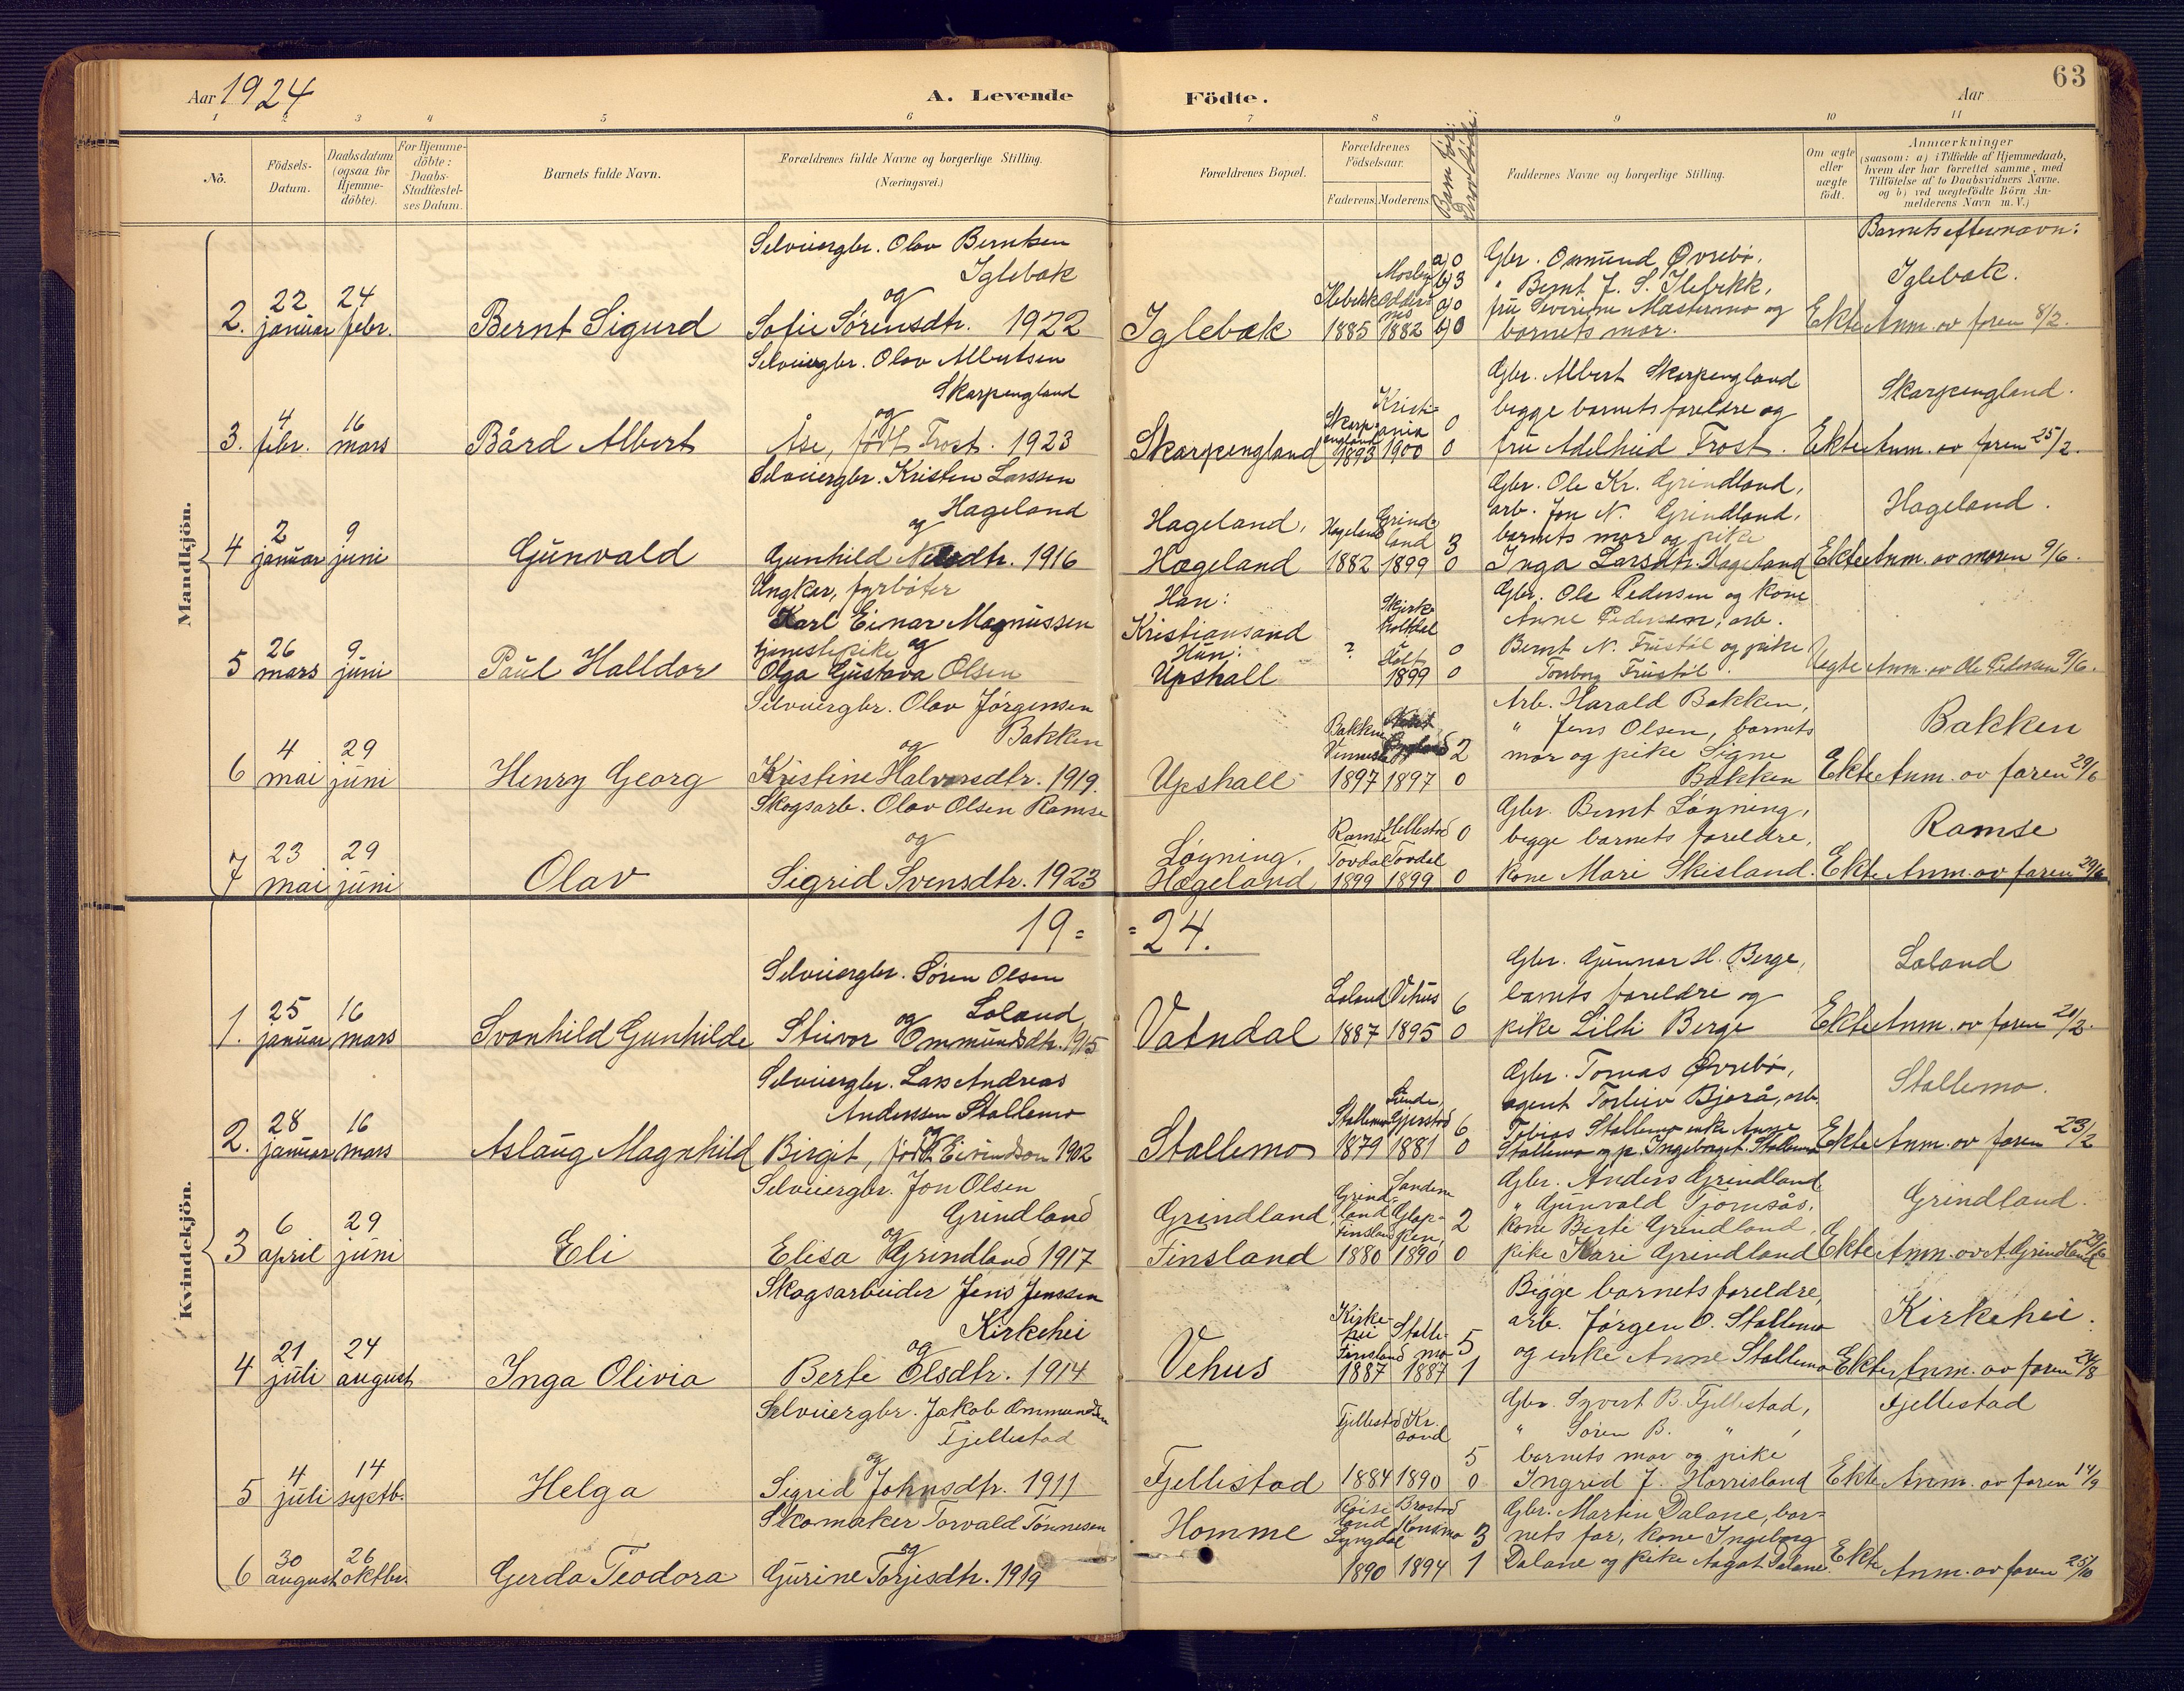 63
Aar 1924
A. Levende
Födte.
Aar
1 2 3 4 5 6 7 8 9 10 11
No.
Födsels-
Datum.
Daabsdatum
(ogsaa for
Hjemme-
döbte).
For Hjemme-
döbte:
Daabs-
Stadfæstel-
ses Datum.
Barnets fulde Navn.
Forældrenes fulde Navne og borgerlige Stilling.
(Næringsvei.)
Forældrenes Bopæl.
Forældrenes
Födselsaar.
Faderens. Moderens.
Barn før:
Derav døde:
Faddernes Navne og borgerlige Stilling.
Om ægte
eller
uægte
født.
Anmærkninger
(saasom: a) i Tilfælde af Hjemmedaab,
hvem der har forrettet samme, med
Tilföielse af to Daabsvidners Navne,
og b) ved uægtefödte Börn An-
melderens Navn m. V.)
Barnets efternavn:
Mandkjön.
2. 22 januar
24 febr.
Bernt Sigurd
Selveiergbr. Olav Berntsen
Iglebæk
og
Sofie Sørensdtr. 1922
Iglebæk
Ilebekk
1885
Mosby
1882
a) 0
b) 3
a) 0
b) 0
Gbr. Osmund Øvrebø,
" Bernt J. S. Ilebekk,
fru Severine Mæstermo og
barnets mor.
Ekte
Iglebæk.
Anm. av faren 8/2.
3. 4 febr.
16 mars
Bård Albert
Selveiergbr. Olav Albertsen
Skarpengland
og
Åse, født Trost. 1923
Skarpengland
Skarp-
england
1893
Kristi-
ania
1900
0
0
Gbr. Albert Skarpengland
begge barnets foreldre og
fru Adelheid Trost.
Ekte
Skarpengland.
Anm. av faren 25/2.
4 2 januar
9 juni
Gunvald
Selveiergbr. Kristen Larssen
Hageland
og
Gunhild Nilsdtr. 1916
Hageland,
Hægeland
Hageland
1882
Grind-
land
1899
3
0
Gbr. Ole Kr. Grindland,
arb. Jon N. Grindland,
barnets mor og pike
Inga Larsdtr. Hageland
Ekte
Hageland.
Anm. av moren 9/6.
5 26 mars
9 juni
Paul Halldor
Ungkar, fyrbøter
Karl Einar Magnussen
tjenestepike og
Olga Gustava Olsen
Han:
Kristiansand
Hun:
Upshall
?
Holt
1899
0
0
Gbr. Ole Pedersen og kone
Anne Pedersen, arb.
Bernt N. Frustøl og pike
Tomborg Frustøl.
Uegte
Anm. av Ole Pedersen 9/6.
6 4 mai
29 juni
Henry Georg
Selveiergbr. Olav Jørgensen
Bakken
og
Kristine Halvorsdtr. 1919.
Upshall
Bakken
Vennesla
1897
1897
2
0
Arb. Harald Bakken,
" Jens Olsen, barnets
mor og pike Signe
Bakken
Ekte
Bakken
Anm. av faren 29/6
7 23 mai
29 juni
Olav
Skogsarb. Olav Olsen Ramse
og
Sigrid Svensdtr. 1923
Løyning,
Hægeland
Ramse
Tovdal
1899
Hillestad
Tovdal
1899
0
0
Gbr. Bernt Løyning,
begge barnets foreldre,
kone Mari Skisland.
Ekte
Ramse
Anm. av faren 29/6
19 = = 24.
Kvindekjön.
1. 25 januar
16 mars
Svanhild Gunhilde
Selveiergbr. Søren Olsen
Loland
og
Stuvor Ommundsdtr. 1915
Vatndal
Loland
1887
Vehus
1895
6
0
Gbr. Gunnar H. Berge,
barnets foreldre og
pike Lilli Berge
Ekte
Loland
Anm. av faren 20/2.
2. 28 januar
16 mars
Aslaug Magnhild
Selveiergbr. Lars Andreas
Anderssen Stallemo
og
Birgit, født Eivindson 1902
Stallemo
Stallemo
1879
Sunde,
Gjerstad
1881
6
0
Gbr. Tomas Øvrebø,
agent Torleiv Bjorå, arb.
Tobias Stallemo enke Anne
Stallemo og p. Ingeborg T. Stallemo
Ekte
Stallemo.
Anm. av faren 23/2
3 6 april
29 juni
Eli
Selveiergbr. Jon Olsen
Grindland
og
Elisa Grindland 1917
Grindland,
Finsland
Grind-
land
Finsland
1880
1890
2
0
Gbr. Anders Grindland
" Gunvald Tjomsås,
kone Berte Grindland,
pike Kari Grindland
Ekte
Grindland.
Anm. av A. Grindland 29/6
4 21 juli
24 august
Inga Olivia
Skogsarbeider Jens Jenssen
Kirkehei
og
Berte Olsdtr. 1914
Vehus
Kirke-
hei
Finsland
1887
Stalle-
mo
1887
5
1
Begge barnets foreldre,
arb. Jørgen O. Stallemo
og enke Anne Stallemo
Ekte
Kirkehei.
Anm. av faren 24/8
5 4 juli
14 septb.
Helga
Selveiergbr. Jakob Ommundsen
Fjellestad
og
Sigrid Johnsdtr. 1911
Fjellestad
Fjellestad
1884
Kr.
sand
1890
5
0
Gbr. Syvert B. Fjellestad,
" Søren B. " ,
barnets mor og pike
Ingrid J. Horrisland
Ekte
Fjellestad
Anm. av faren 14/9
6 30 august
26 oktbr.
Gerda Teodora
Skomaker Torvald Tønnesen
og
Gurine Torjesdtr. 1919
Homme
Røise
land
Lyngdal
1890
Brastad
Konsmo
1894
3
1
Gbr. Martin Dalane, bar-
nets far, kone Ingeborg
Dalane og pike Aagot Dalane.
Ekte
Anm. av faren 25/10